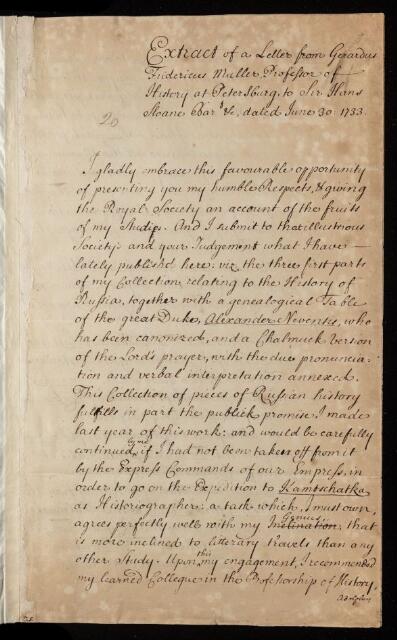 Extract of a Letter from Gerardus
Fridericus Muller Professor of
History at Petersburg, to Sir Hans
Sloane Bart. &c, dated June 30. 1733.
20
I gladly embrace this favourable opportunity
of presenting you my humble Respects, & giving
the Royal Society an account of the fruits
of my Studies. And I submit to that illustrious
Society's and your Judgement what I have
lately publish'd here: viz. the three first parts
of my Collection relating to the History of
Russia, together with a genealogical Table
of the great Duke, Alexander Nevensis, who
has been canonized, and a Chalmuck Version
of the Lord's prayer, with the due pronuncia-
tion and verbal interpretation annexed.
This Collection of pieces of Russian history
fulfills in part the publick promise I made
last year of this work: and would be carefully
continued by me, if I had not been taken off from it
by the Express Commands of our Empress, in
order to go on the Expedition to Kamtschatka
as Historiographer: a task which, I must own,
agrees perfectly well with my Inclination Genius, that
is more inclined to litterary travels than any
other Study. Upon this my engagement, I recommended
my learned Collegue in the Professorship of History,